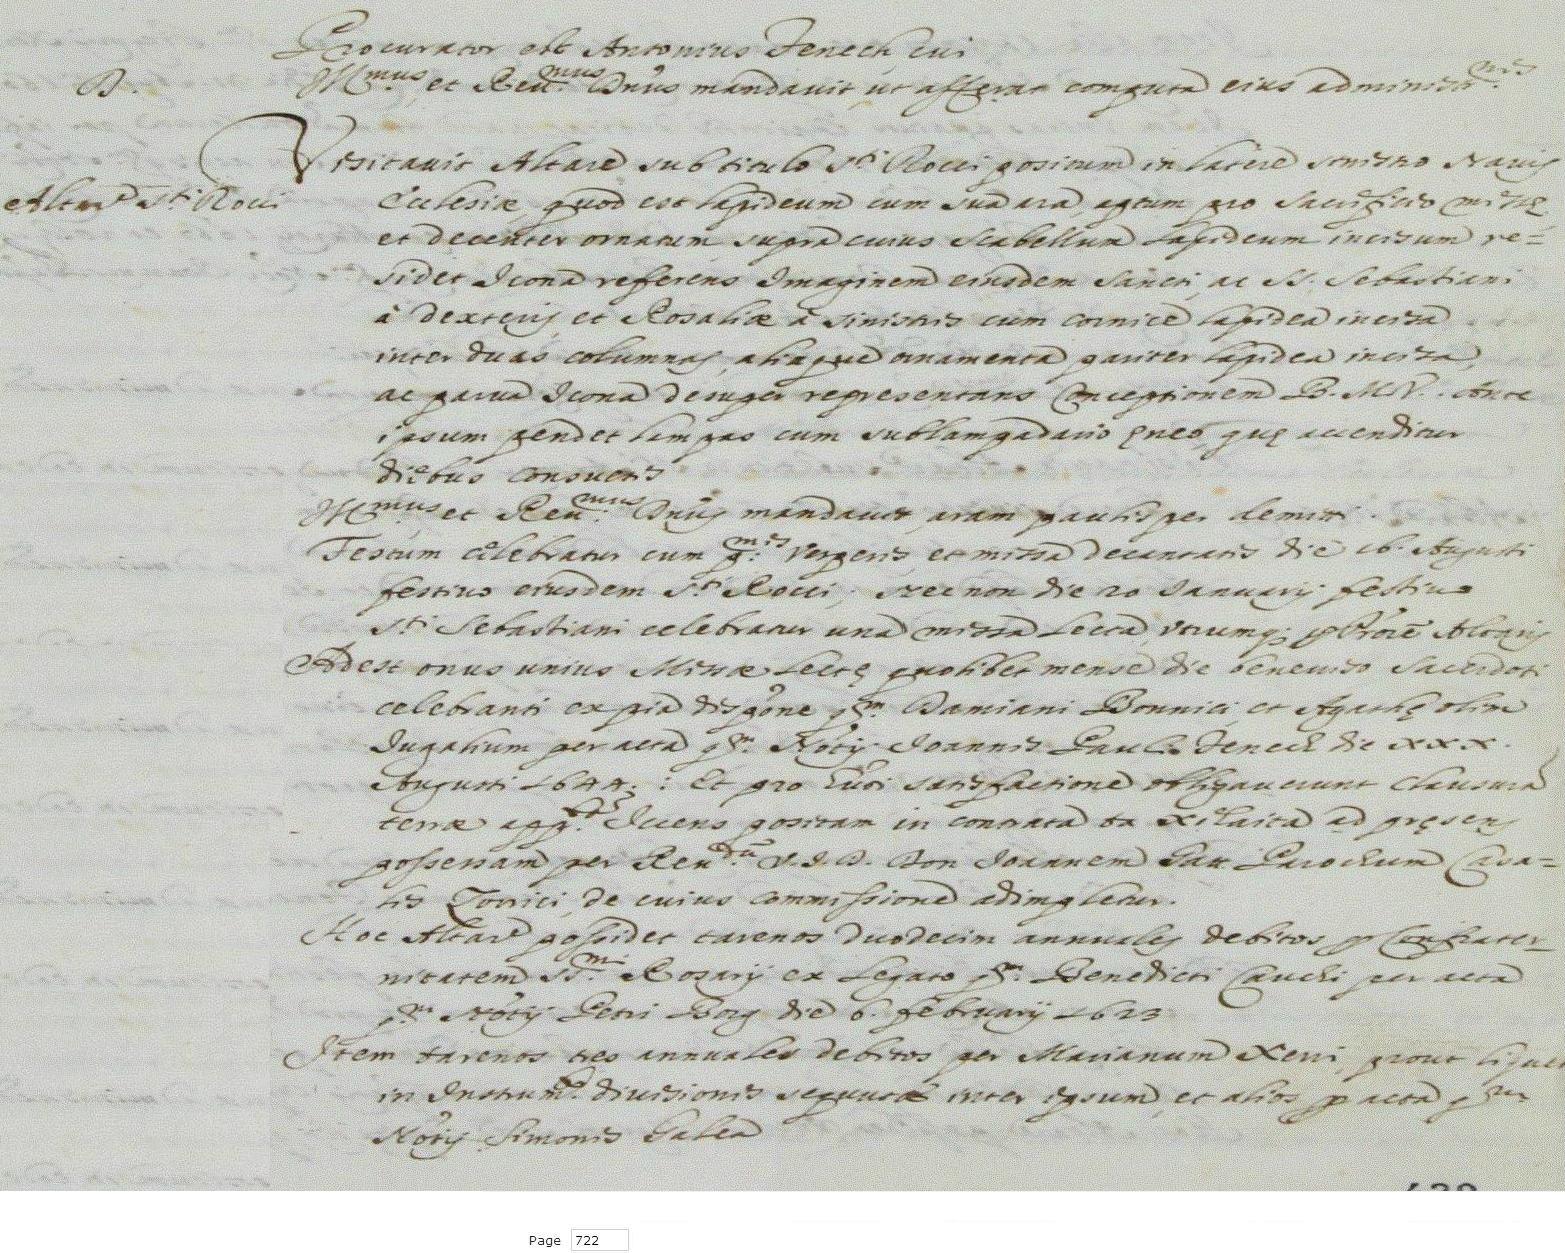 Procurator est Antonius Fenech, cui
D. Ill.mus et Reu.mus Dnus mandauit, ut afferat computa eius administr.nis
Visitauit Altare sub titulo S.ti Rocci positum in latere sinistro Nauis
Altare S.ti Rocci Ecclesiæ, quod est lapideum cum sua ara, aptum pro Sacrificio missę
et decenter ornatum supra cuius scabellum lapideum incisum re=
sidet Icona referens Imaginem eiusdem Sancti, ac SS. Sebastiani
à dexteris, et Rosaliæ à sinistris cum cornice lapidea incisa
inter duas columnas, aliaque ornamenta pariter lapidea incisa,
ac parua Icona desuper representans Conceptionem B.M.V. Ante
ipsum pendet lampas cum sublampadario ęneo, quę accenditur
diebus consuetis
Ill.mus et Reu.mus Dnus mandauit aram paulisper demitti
Festum celebratur cum p.mis Vesperis, et missa decantatis die 16. Augusti
festiuo eiusdem S.ti Rocci, necnon die 20 Ianuarij festiuo
S.ti Sebastiani celebratur una missa lecta, utrumq; p Prõrē Altaris
Adest onus unius Missæ lectę quolibet mense die beneuiso Sacerdoti
celebranti ex pia dispõne qm. Damiani Bonnici, et Agathę olim
Iugalium per acta qm. Notrij Ioannis Paul. Fenech die XXX.
Augusti 1644. : Et pro satisfactione obligauerunt clausura
terræ Iccens positam in contrata ta ad pręsens
possessam per Reu.du V.I.D. Don Ioannem Parochum Casa=
lis Zorrici, de cuius commissione adimpletur.
Hoc Altare possidet tarenos duodecim annuales debitos p Confrater=
nitatem SS.mi Rosarij ex legato qm. Benedicti Cauchi per acta
qm. Notrij Petri Borg die 6. februarij 1623
Item tarenos tres annuales debitos per Marianum Xerri, prout liquet
in Instrum.to diuisionis sequutæ inter ipsum, et alios p acta qm.
Notrij Simonis Galea
Page 722